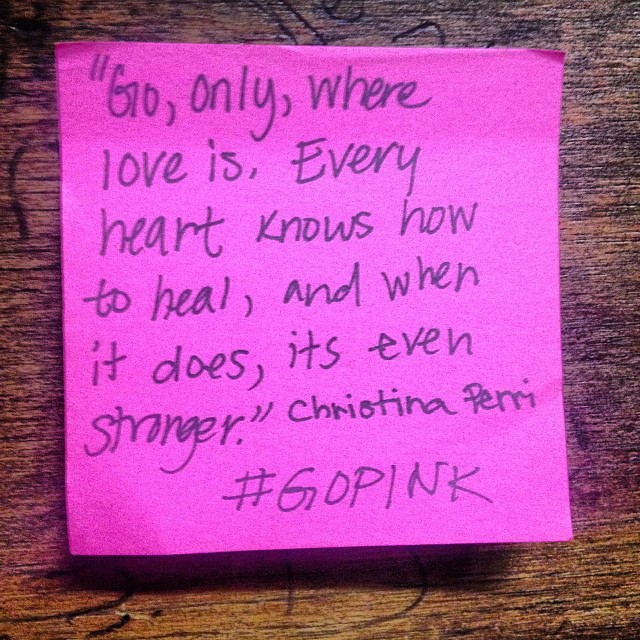 "Go, only, where
love is. Every
heart knows how
to heal, and when
it does, its even
stronger." Christina Perri
#GOPINK